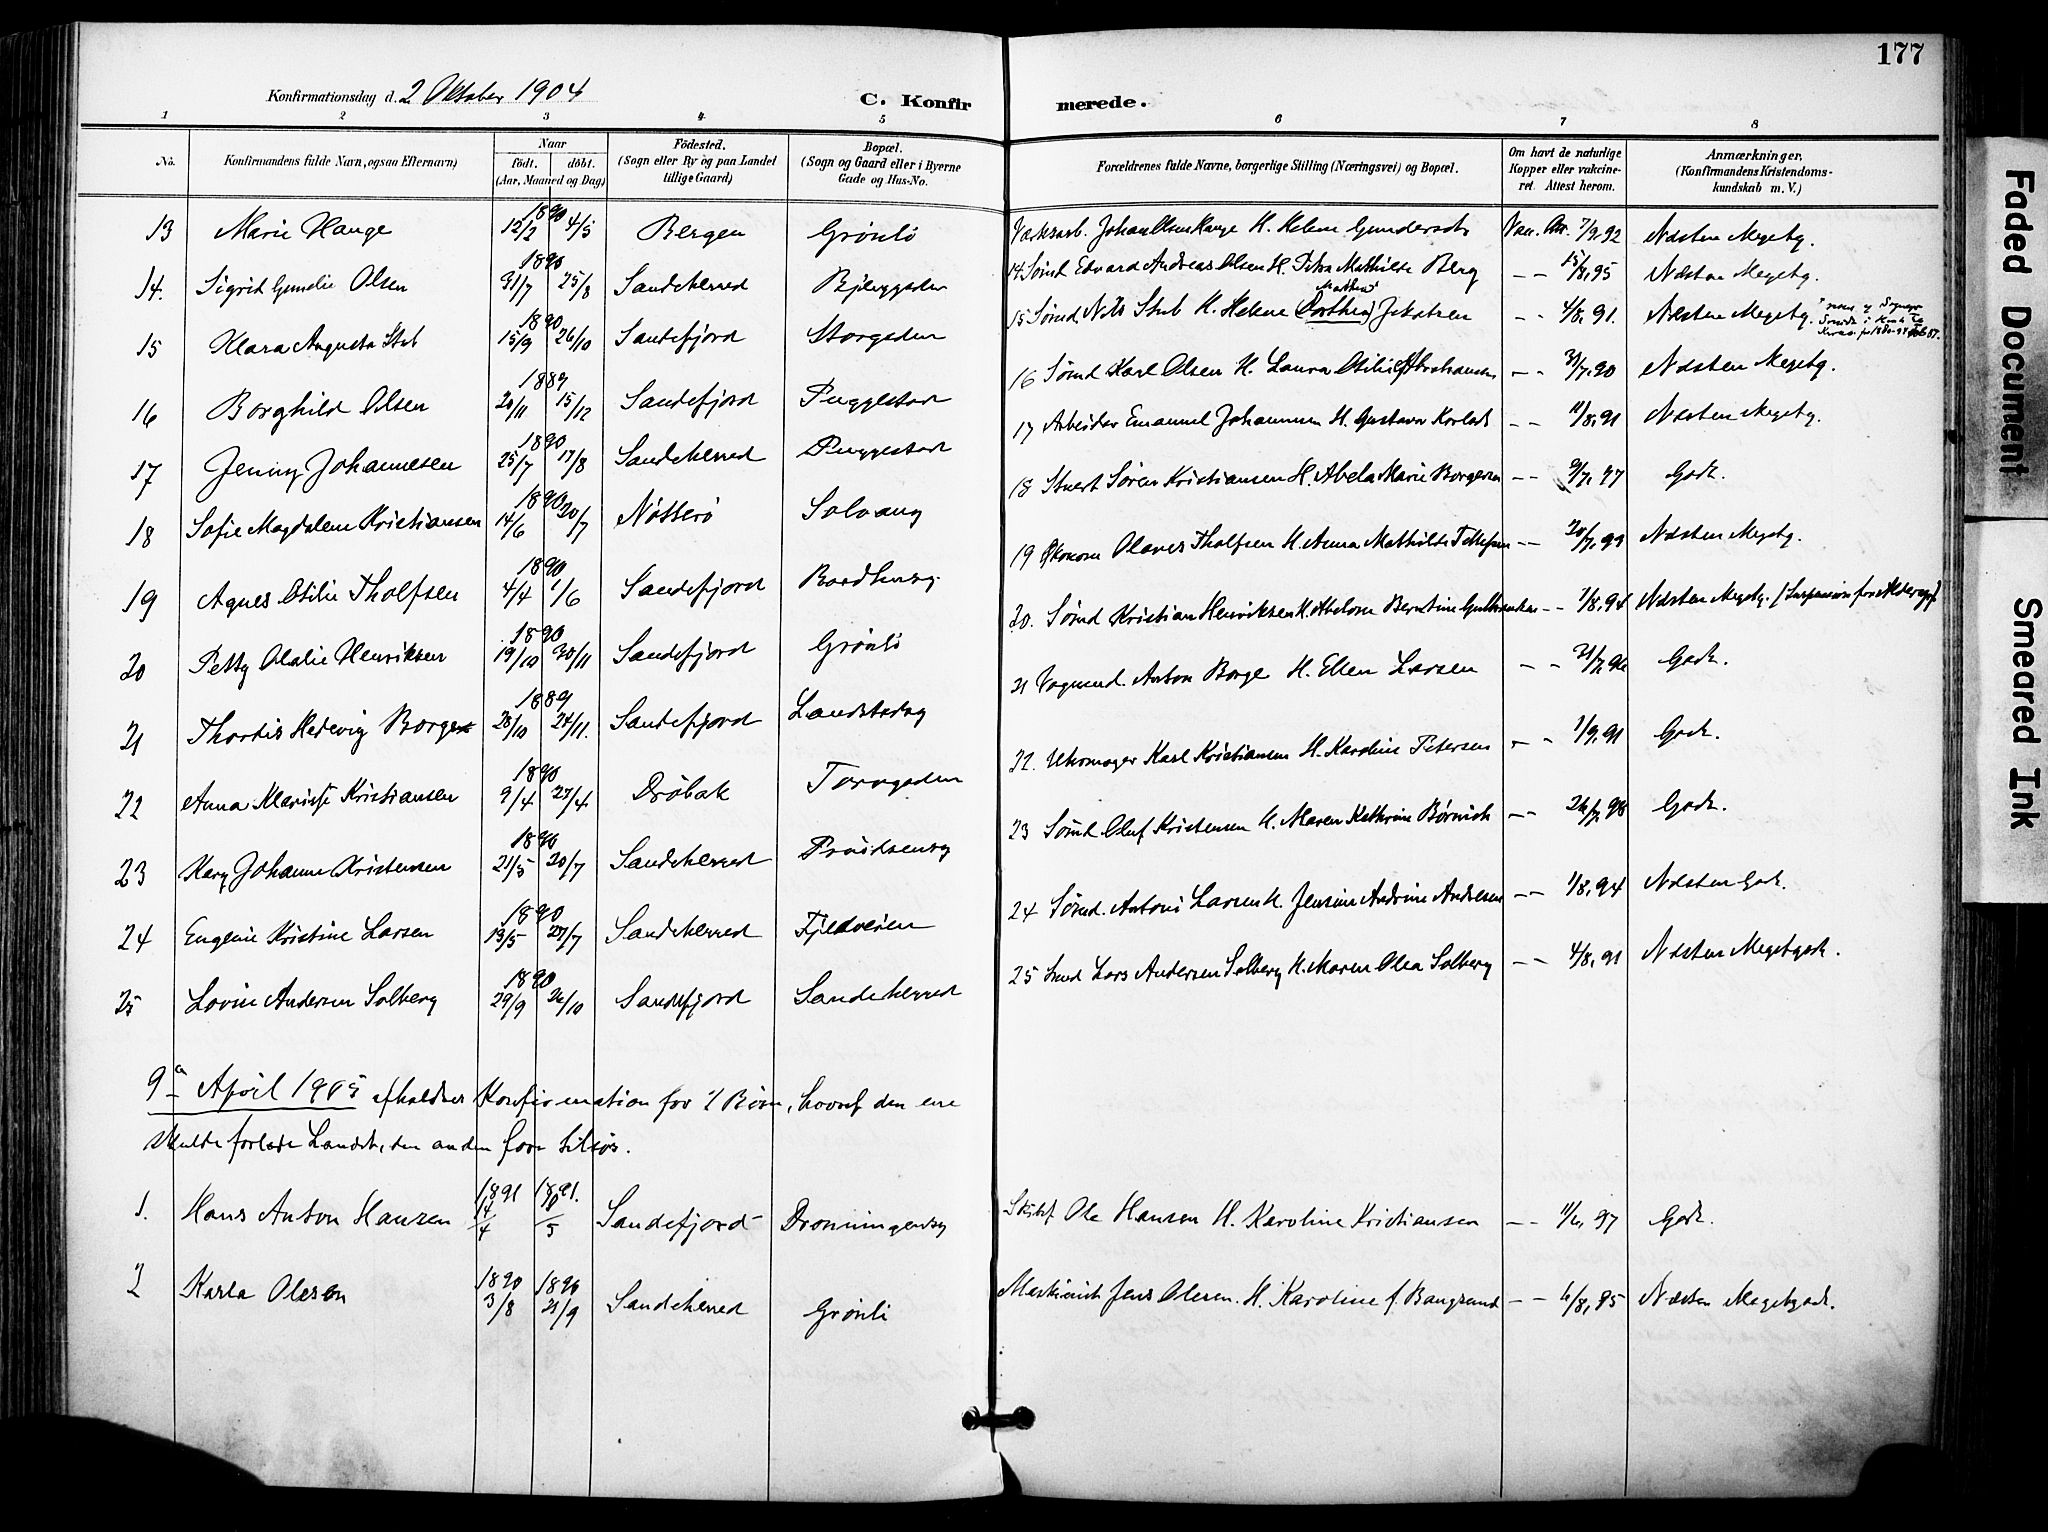 177
Konfirmationsdag d. 2 Oktober 1904
C. Konfirmerede.
1 2 3 4 5 6 7 8
No. Konfirmandens fulde Navn, ogsaa Efternavn) Naar födt. döbt. (Aar, Maaned og Dag) Födested. (Sogn eller By og paa Landet tillige Gaard) Bopæl. (Sogn og Gaard eller i Byerne Gade og Hus-No. Forældrenes fulde Navne, borgerlige Stilling (Næringsvei) og Bopæl. Om havt de naturlige Kopper eller vakcineret. Attest herom. Anmærkninger. (Konfirmandens Kristendomskundskab m. V.)
13 Marie Hauge 1890 12/2 4/5 Bergen Grönli Johan Olsen Hauge H. Helene 7/9.92 Næsten Megetg.
14. Sigrid Olsen 1890 31/7 25/8 Sandeherred 14 Sömd Edvard Andreas Olsen H. Petra Mathilde Berg - - 15/8.95 Næsten Megetg.
15 Klara Augusta Stub 1890 15/9 26/10 Sandefjord Storgaden 15 Sömd. Nils Stub H. Helene - - 4/8.91. Næsten Megetg.
16 Borghild Olsen 1889 20/11 15/12 Sandefjord Puggestad 16 Sömd Karl Olsen H. Laura Otilie Abrahamsen - - 31/7.90 Næsten Megetg.
17 Jenny Johannesen 1890 25/7 17/8 Sandeherred Puggestad 17 Arbeider Emanuel Johannesen H. Gustava - - 11/8.91 Næsten Megetg.
18 Sofie Magdalene Kristiansen 1890 14/6 20/7 Nötterö Solvang 18 Stuert Sören Kristiansen H. Abela Marie Borgersen - - 9/7.97 Godt.
19 Agnes Otilie Tholfsen 1890 4/4 1/6 Sandefjord 19 Ökonom Olaves Tholfsen H. Anna Mathilde - - 20/7.99 Næsten Megetg.
20 Petty Olalie Henriksen 1890 19/10 30/11 Sandefjord Grönli 20. Sömd Kristian Henriksen H. Berntine - - 1/8.94 Næsten Megetg.
21 Thordis Hedevig Borge 1889 28/10 24/11. Sandefjord Landstadsg 21 Vognmd. Anton Borge H. Ellen Larsen - - Godt.
22 Anna Klarisse Kristiansen 1890 9/4 27/4 Dröbak Torvgaden 22. Uhrmager Karl Kristiansen H. Karoline Petersen - - 1/9.91 Godt.
23 Johanne Kristensen 1890 21/5 20/7 Sandeherred 23 Sömd Oluf Kristensen H. Maren Kathrine - - Godt.
24 Eugenie Kristine Larsen 1890 13/5 27/7 Sandeherred Fjeldveien 24 Sömd. Antoni Larsen H. Jensine Andrine Andresen - - 1/8.94 Næsten Godt.
25 Lovise Andersen Solberg 1890 29/9 26/10 Sandefjord Sandeherred 25 Lars Andersen Solberg H. Maren Olea Solberg - - 4/8.91 Næsten Megetgodt.
9de April 1905 afholdtes Konfirmation for 2 Börn, hvoraf den ene
skulde forlade Landet, den anden fare tilsös.
1. Hans Anton Hansen 1891 14/4 1891. 10/5 Sandefjord Dronningensg Ole Hansen H. Karoline Kristiansen - - 97 Godt.
2 Karla Olesen 1890 3/8 1890 21/9 Sandeherred Grönli Maskinist Jens Olesen. H. Karoline f. Bangsund - - 6/8.95 Næsten Megetgodt.
Faded Document
Smeared Ink